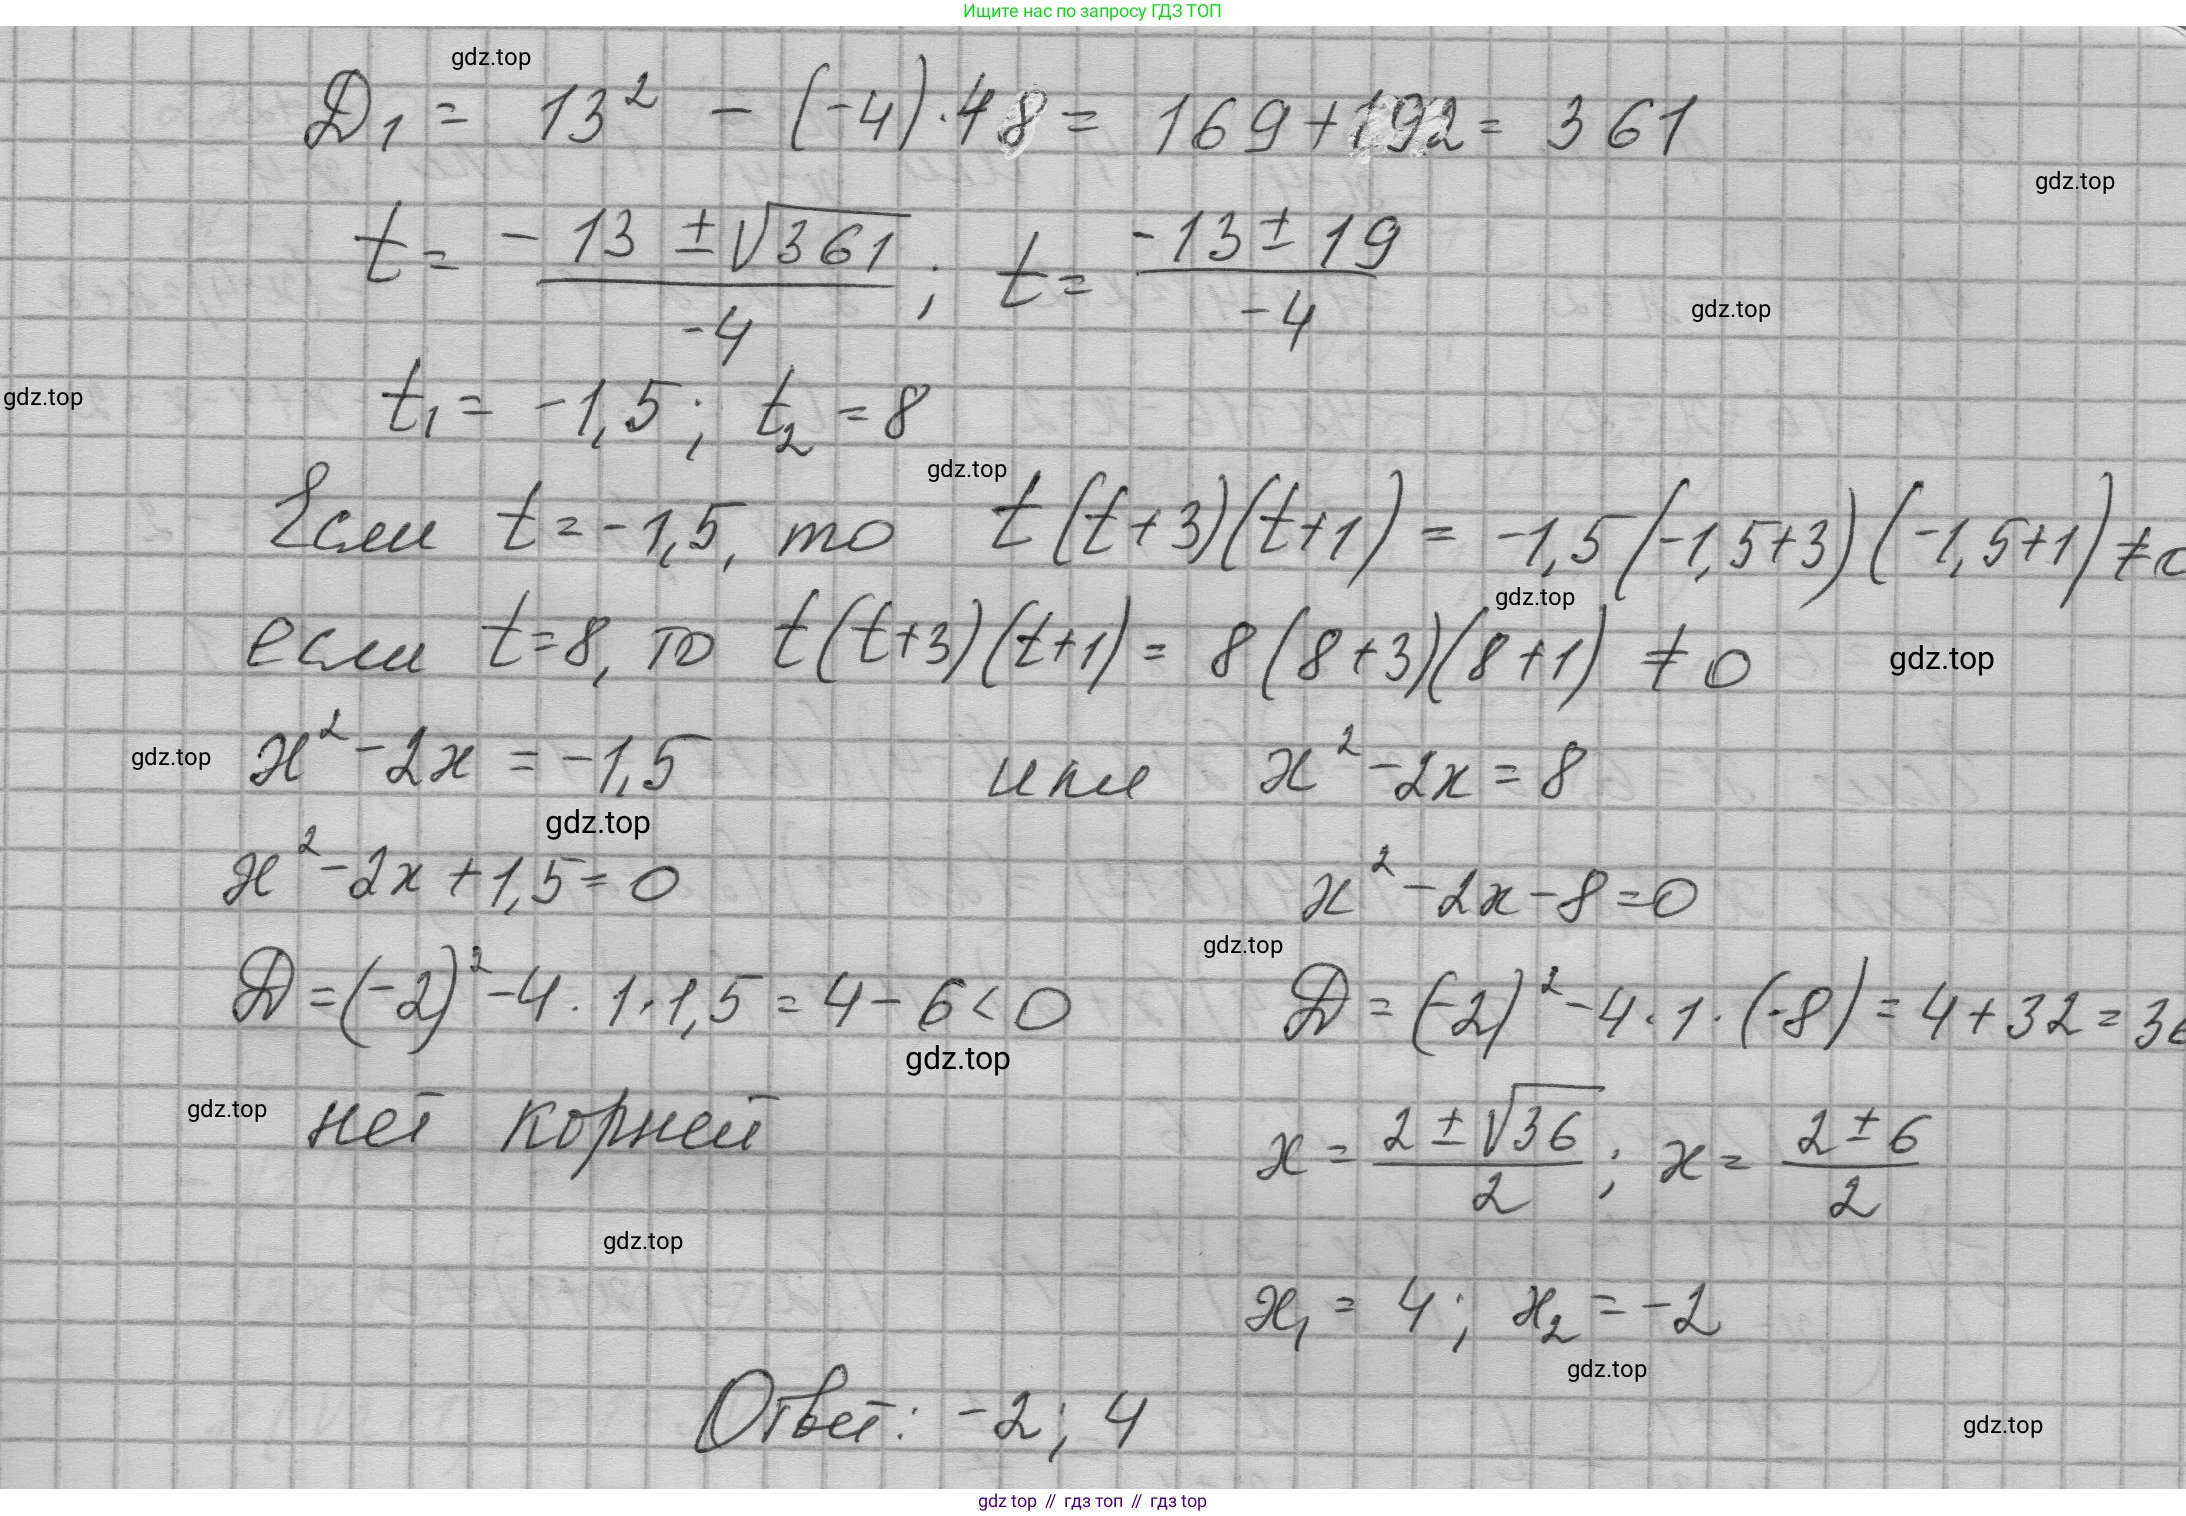 Ищите нас по запросу ГДЗ ТОП
gdz.top
Д₁ = 13² - (-4)·48 = 169 + 192 = 361
gdz.top
t = (-13 ± √361)/-4 ; t = (-13 ± 19)/-4
gdz.top
gdz.top
t₁ = -1,5 ; t₂ = 8
gdz.top
Если t = -1,5, то t(t+3)(t+1) = -1,5(-1,5+3)(-1,5+1) ≠ 0
gdz.top
если t=8, то t(t+3)(t+1) = 8(8+3)(8+1) ≠ 0
gdz.top
gdz.top
x² - 2x = -1,5 или x² - 2x = 8
gdz.top
x² - 2x + 1,5 = 0 x² - 2x - 8 = 0
gdz.top
Д = (-2)² - 4 · 1 · 1,5 = 4 - 6 < 0 Д = (-2)² - 4 · 1 · (-8) = 4 + 32 = 36
gdz.top
gdz.top
нет корней x = (2 ± √36)/2 ; x = (2 ± 6)/2
gdz.top
x₁ = 4 ; x₂ = -2
gdz.top
Ответ: -2 ; 4
gdz.top
gdz top // гдз топ // гдз top